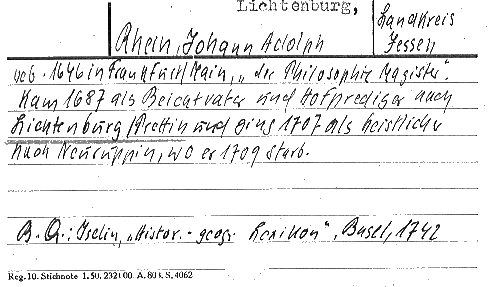 Lichtenburg,
Landkreis
Rhein, Johann Adolph
Jessen
geb. 1646 in Frankfurt/Main, „der Philosophie Magister".
Kam 1687 als Beichtvater und Hofprediger nach
Lichtenburg/Prettin und ging 1707 als Geistlicher
nach Neuruppin, wo er 1709 starb.
B. Q.: Iselin, „Histor.-geogr. Lexikon", Basel, 1742
Reg. 10. Stichnote 1. 50. 232100 A. 803, S. 4062